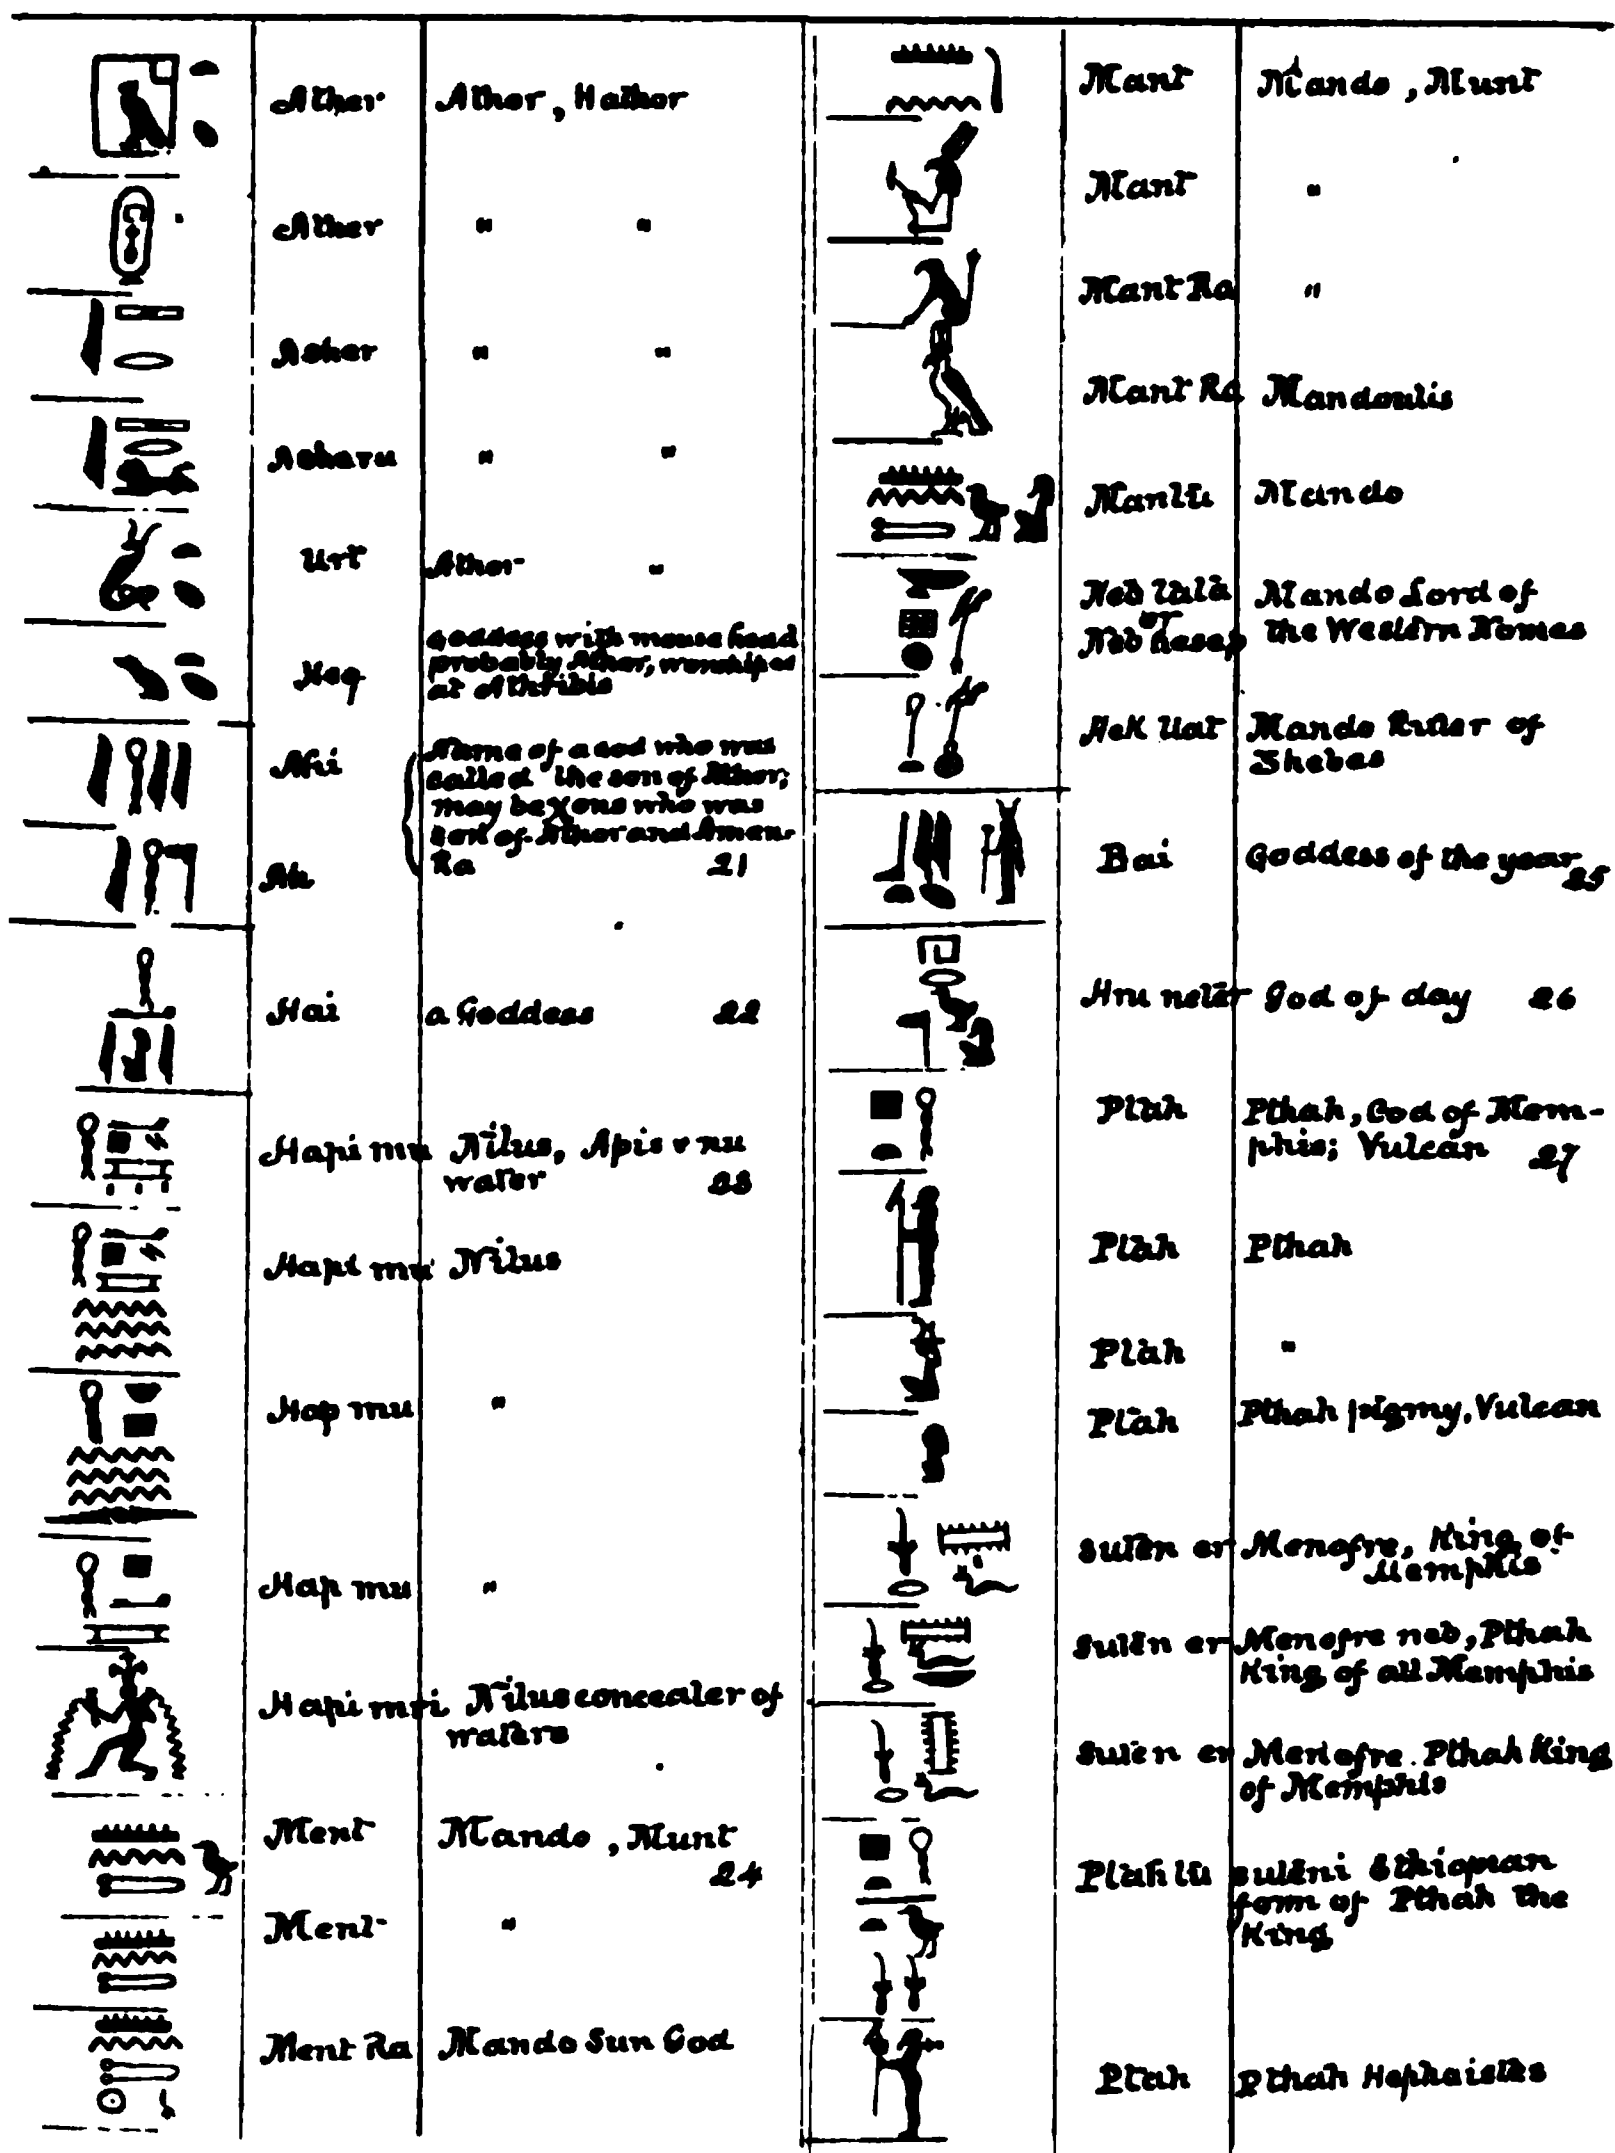 Ather Athor, Hathor
Ather " "
Asher " "
Asheru " "
Urt Athor "
Heq goddess with mouse head
probably Athor, worshiped
at Athribis
Ahi Name of a god who was
called the son of Athor;
may be Xons who was
son of Athor and Amen-
Ah Ra 21
Hai a Goddess 22
Hapi mu Nilus, Apis v nu
water 23
Hapi mu Nilus
Hap mu "
Hap mu "
Hapi mri Nilus concealer of
waters
Ment Mando, Munt
24
Ment "
Ment Ra Mando Sun God
Mant Mando, Munt
Mant "
Mant Ra "
Mant Ra Mandoulis
Mantu Mando
Neb Mando Lord of
or
Neb hesep the Western Nomes
Hek Uat Mando Ruler of
Thebes
Bai Goddess of the year
25
Hru neter God of day 26
Ptah Pthah, God of Mem-
phis; Vulcan 27
Ptah Pthah
Ptah "
Ptah Pthah pigmy, Vulcan
Suten er Menofre, King of
Memphis
Suten er Menofre neb, Pthah
King of all Memphis
Suten er Menofre. Pthah King
of Memphis
Ptah tu suteni Ethiopian
form of Pthah the
King
Ptah Pthah Hephaistos